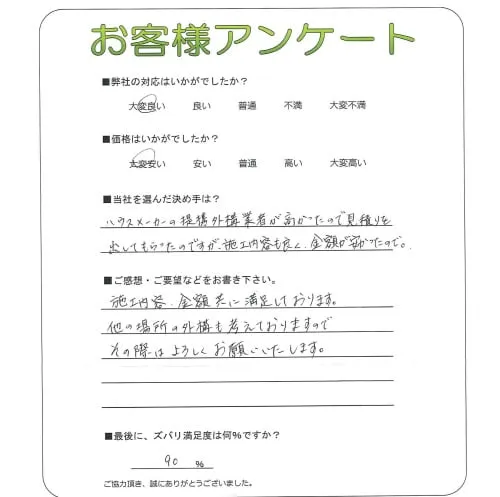 お客様アンケート
■弊社の対応はいかがでしたか？
大変良い 良い 普通 不満 大変不満
■価格はいかがでしたか？
大変安い 安い 普通 高い 大変高い
■当社を選んだ決め手は？
ハウスメーカーの提携外構業者が高かったので見積りを
出してもらったのですが、施工内容も良く、金額が安かったので。
■ご感想・ご要望などをお書き下さい。
施工内容、金額共に満足しております。
他の場所の外構も考えておりますので
その際はよろしくお願いいたします。
■最後に、ズバリ満足度は何％ですか？
90 ％
ご協力頂き、誠にありがとうございました。